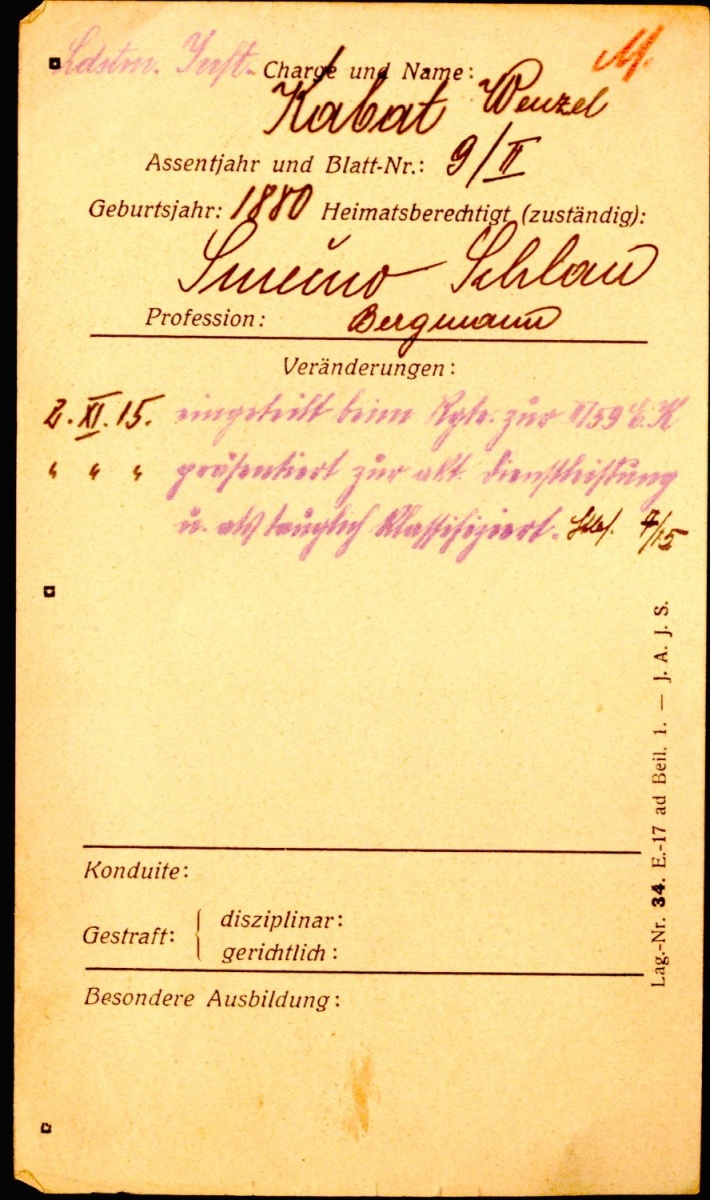 Ldstm. Inft. Charge und Name: M.
Kabat Wenzel
Assentjahr und Blatt-Nr.: 9/II
Geburtsjahr: 1880 Heimatsberechtigt (zuständig):
Smečno Schlan
Profession: Bergmann
Veränderungen:
2. XI. 15. eingeteilt beim zur II/59 E. K
" " " präsentiert zur akt. Dienstleistung
u. als tauglich klassifiziert.
Konduite:
Gestraft: { disziplinar:
gerichtlich:
Besondere Ausbildung:
Lag.-Nr. 34. E.-17 ad Beil. 1. — J. A. J. S.